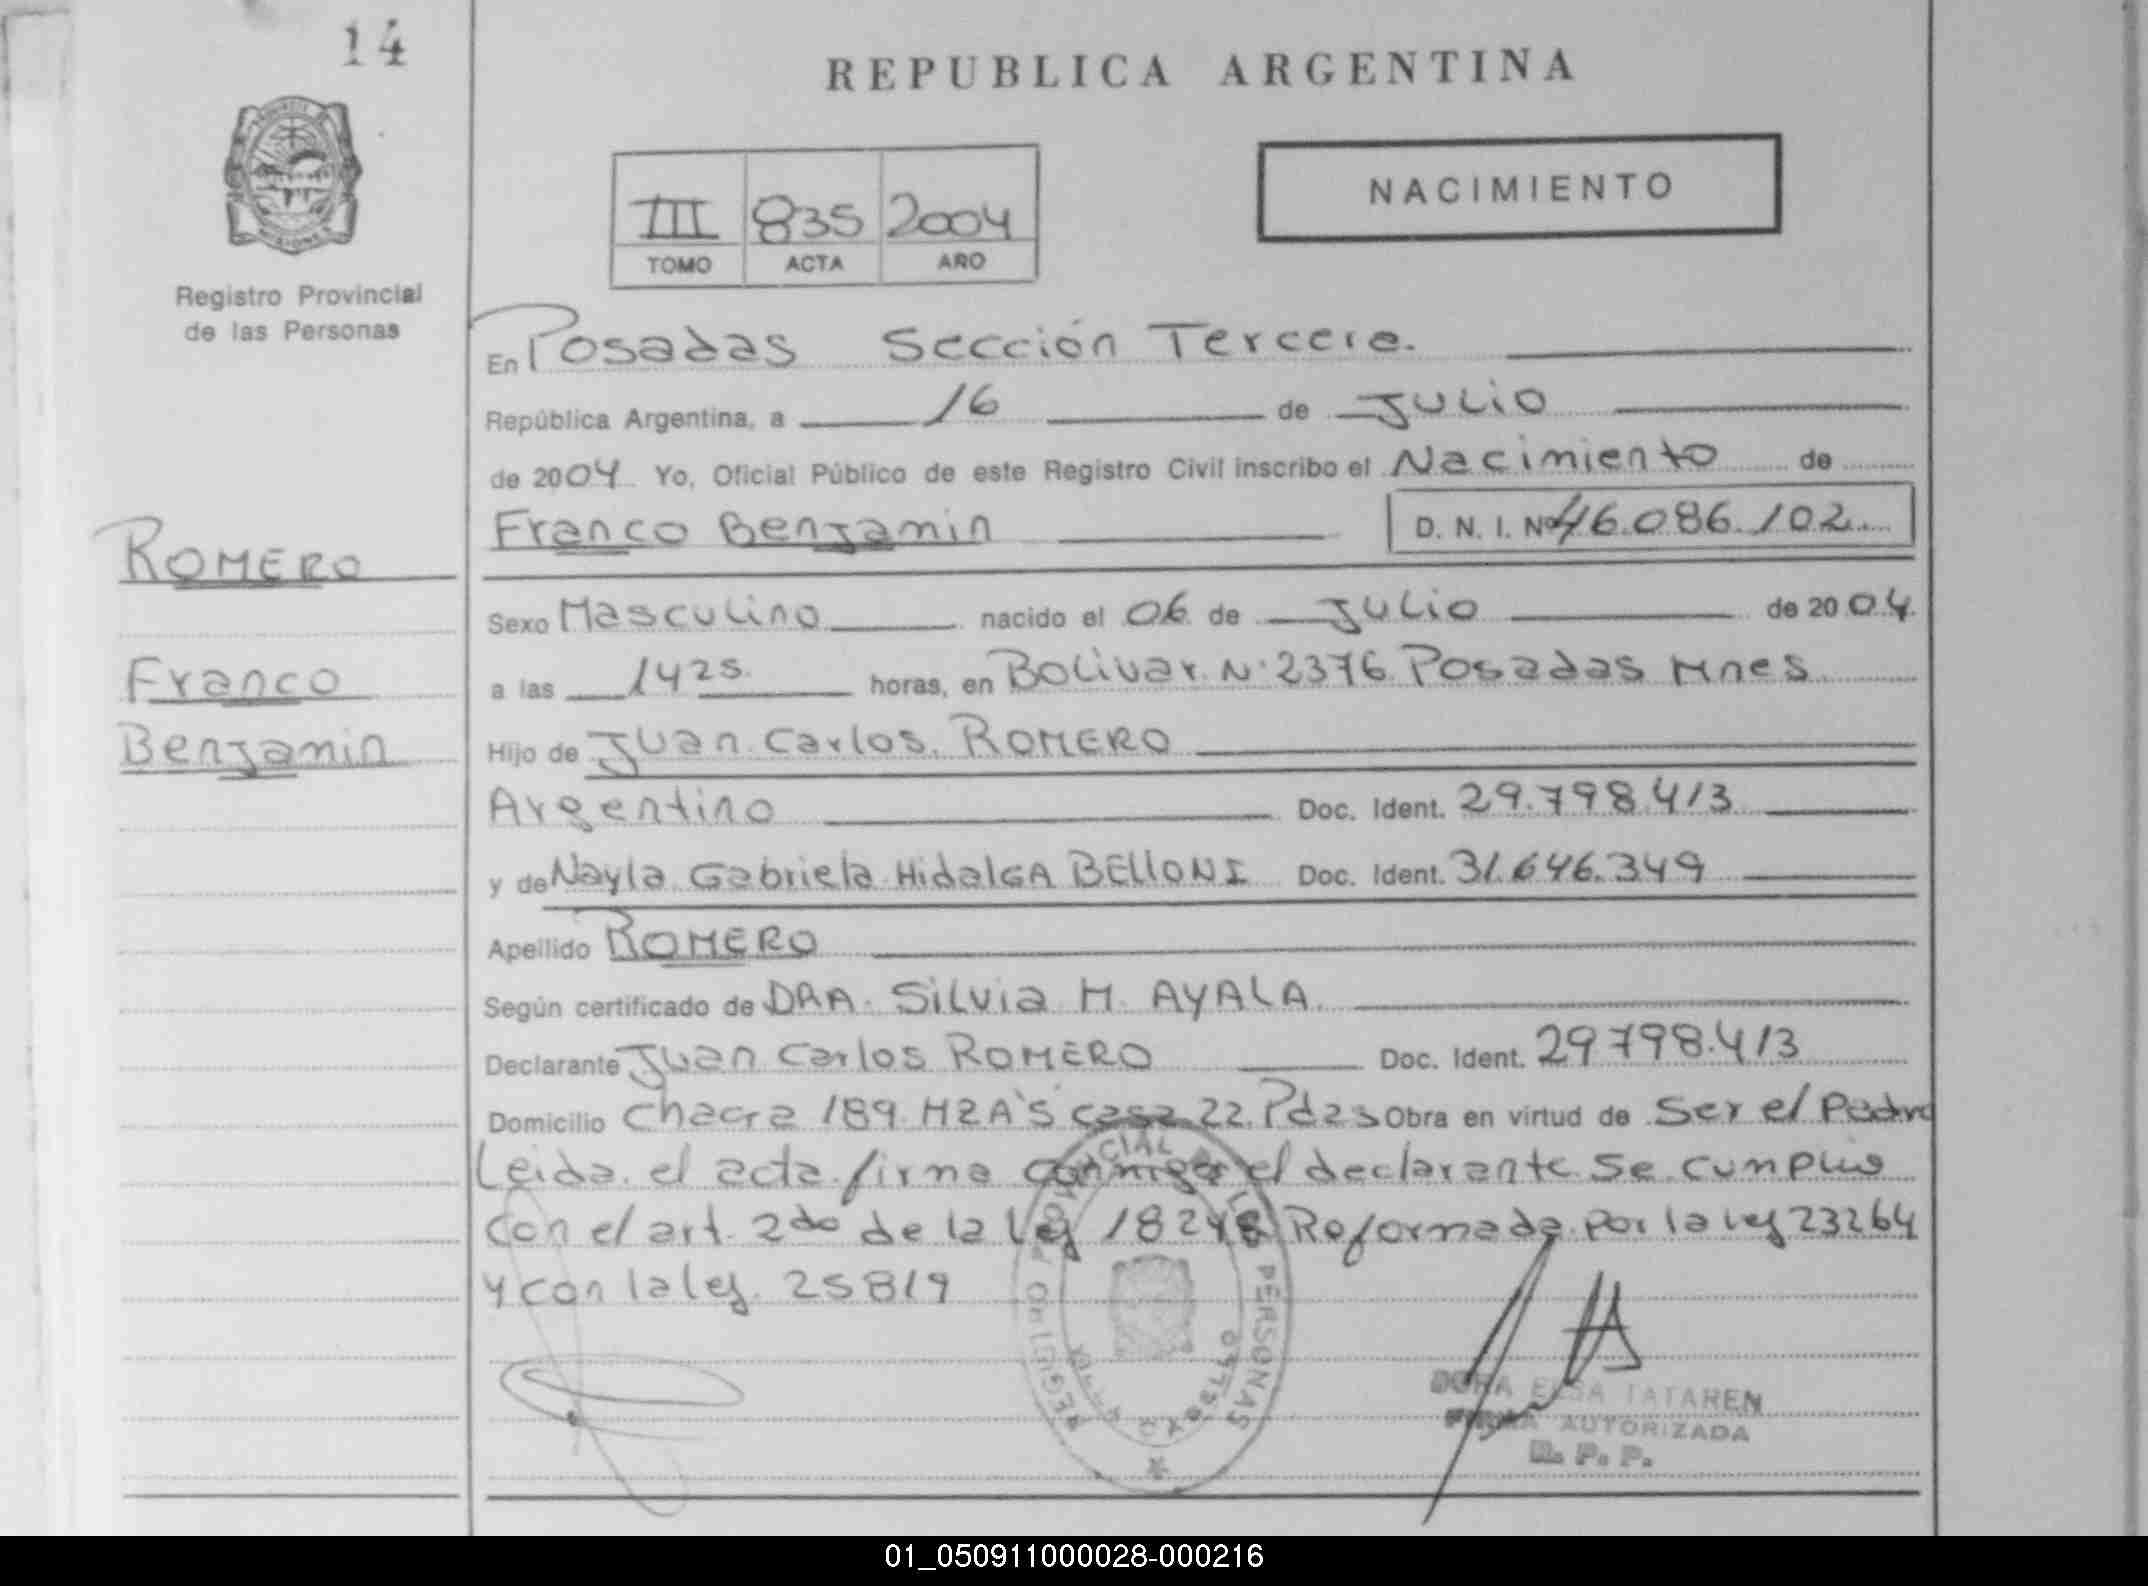 14
REPUBLICA ARGENTINA
NACIMIENTO
III 835 2004
TOMO ACTA AÑO
MISIONES
Registro Provincial
de las Personas
En Posadas Sección Tercera.
República Argentina, a 16 de Julio
de 2004 Yo, Oficial Público de este Registro Civil inscribo el Nacimiento de
Franco Benjamin D. N. I. Nº 46.086.102
ROMERO
Sexo Masculino nacido el 06 de Julio de 2004.
Franco
a las 14 25 horas, en Bolivar N° 2376 Posadas Mnes
Benjamin
Hijo de Juan Carlos ROMERO
Argentino Doc. Ident. 29.798.413
y de Nayla Gabriela HidalGA BELLONI Doc. Ident. 31.646.349
Apellido ROMERO
Según certificado de DRA. Silvia M. AYALA
Declarante Juan Carlos ROMERO Doc. Ident. 29798.413
Domicilio Chacra 189 MZA'S casa 22. Pdas Obra en virtud de Ser el Padre
Leida el acta firma conmigo el declarante Se cumplio
con el art. 2do de la ley 18248 Reformada por la ley 23264
y con la ley 25819
REGISTRO PROVINCIAL DE LAS PERSONAS
DORA ELSA TATAREN
FIRMA AUTORIZADA
R. P. P.
01_050911000028-000216